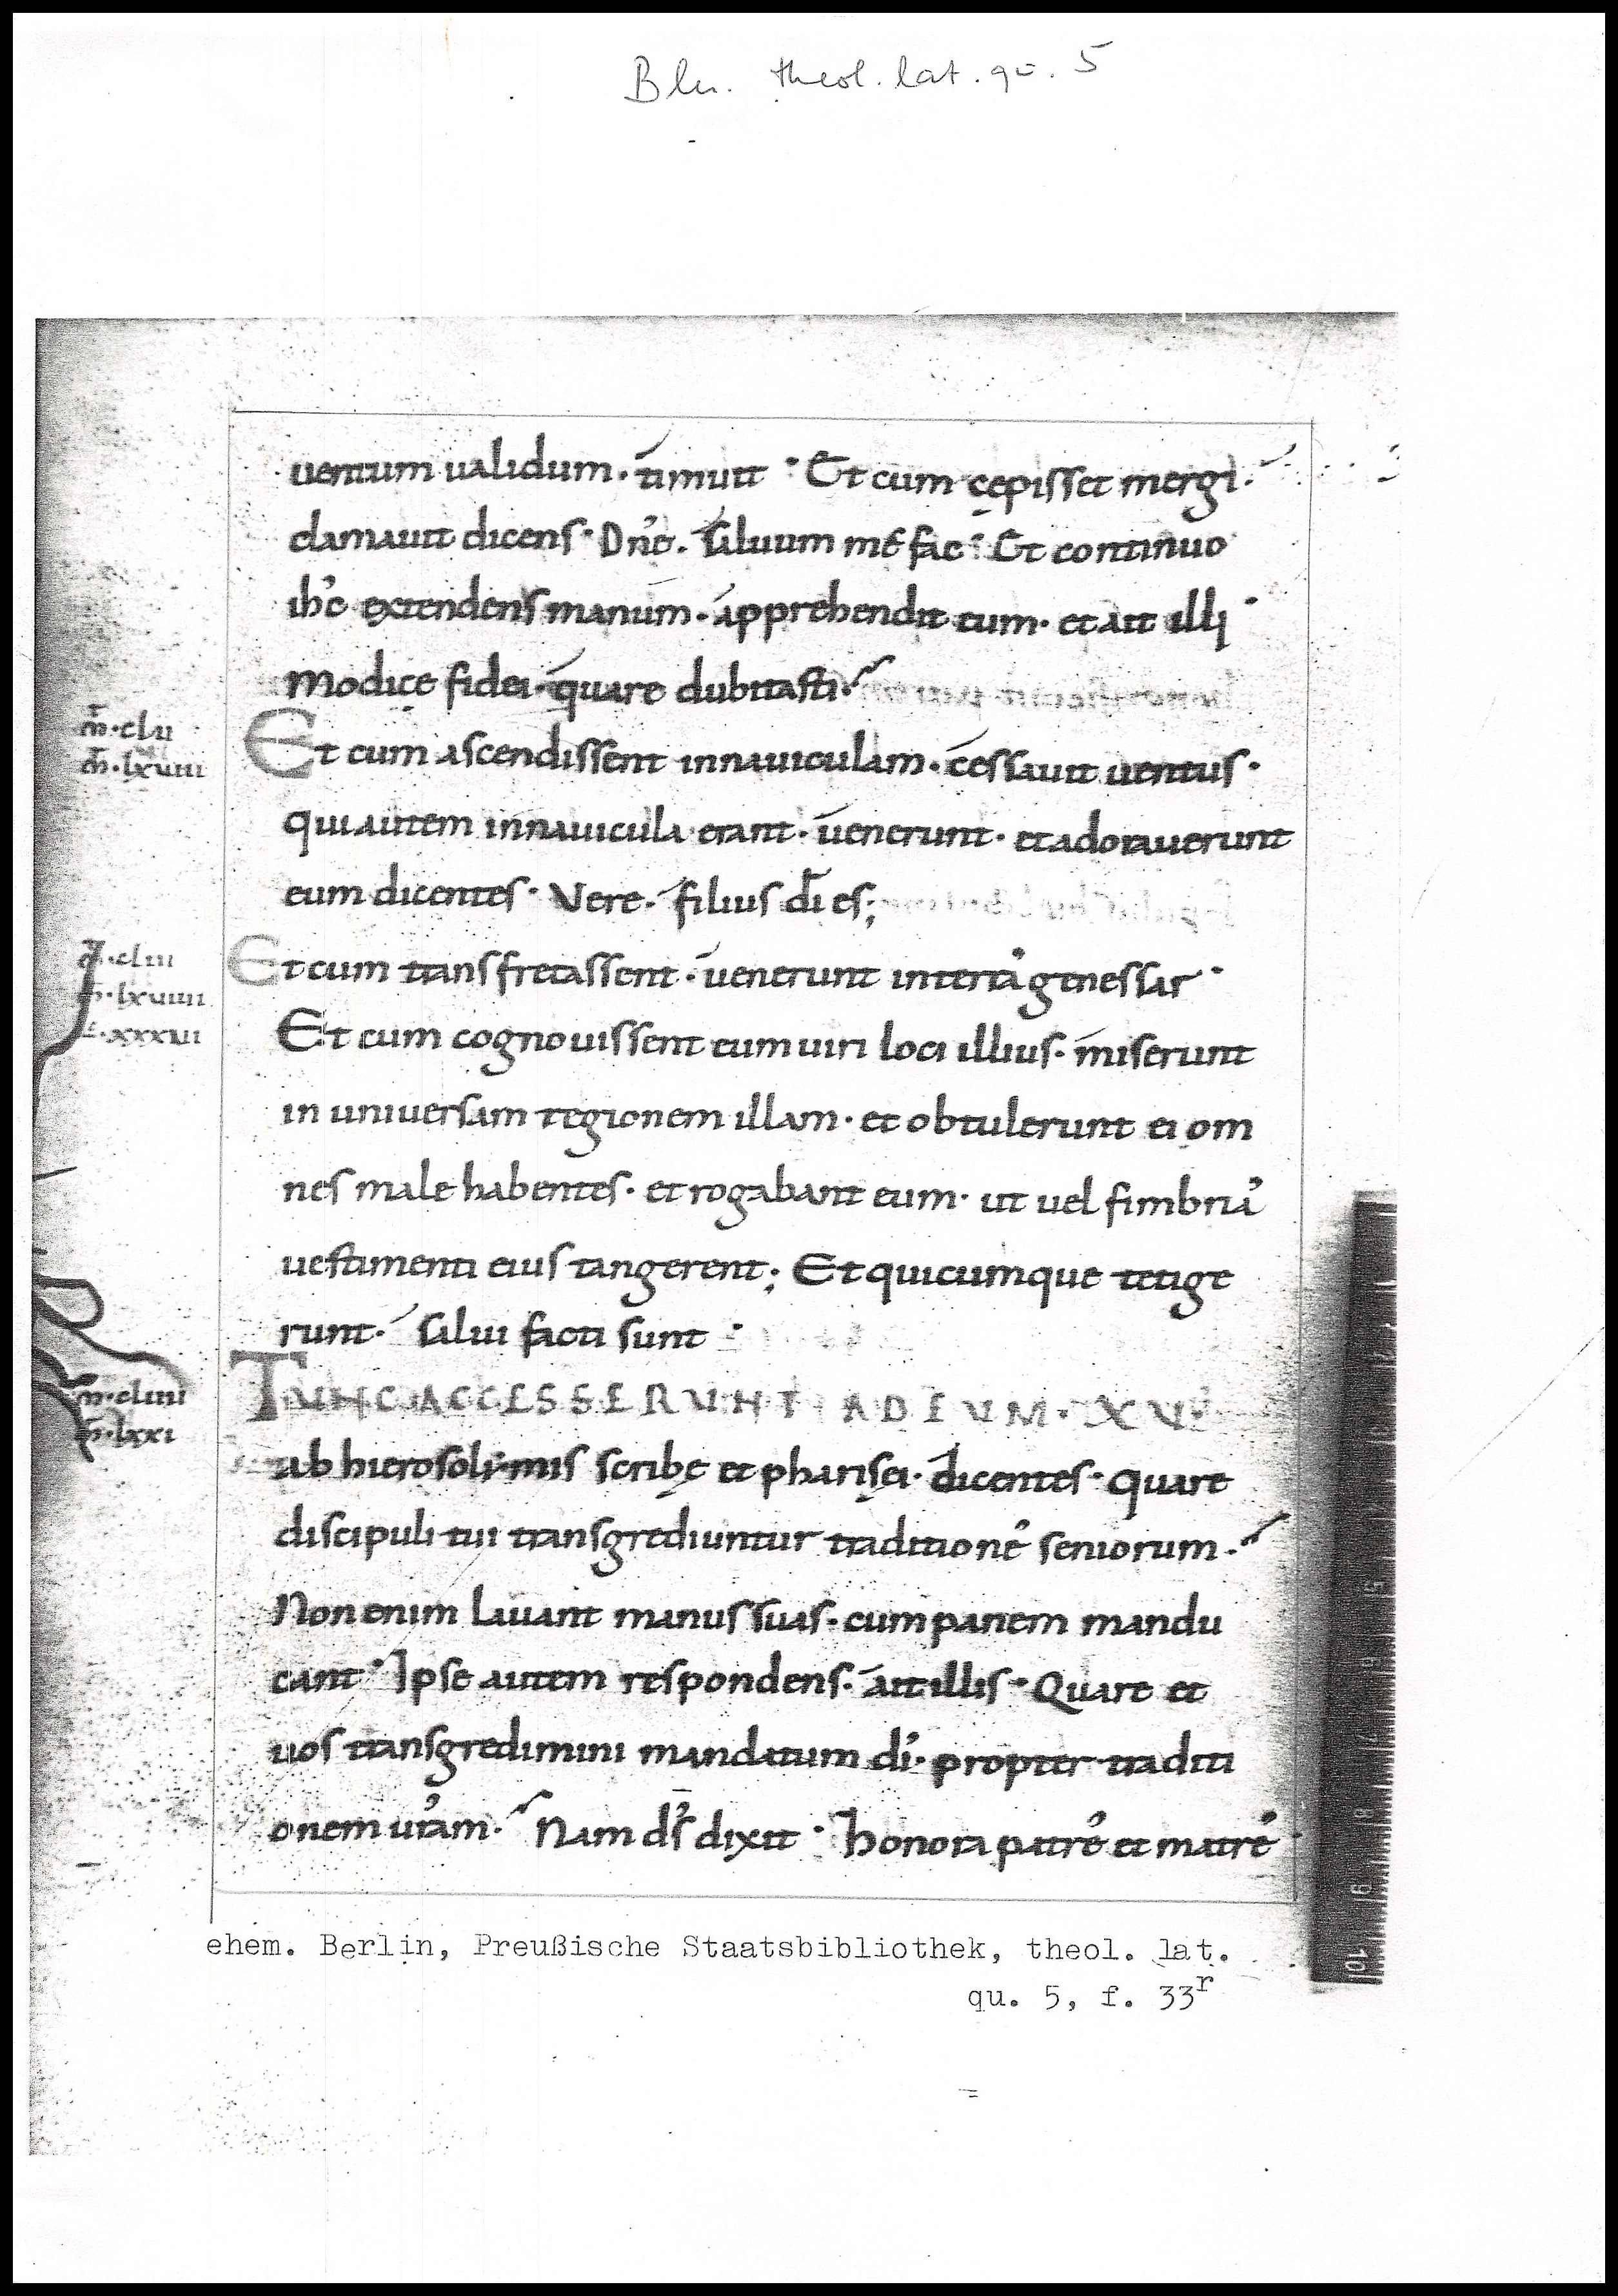 Bln. theol. lat. qu. 5
uentum ualidum. timuit · Et cum cępisset mergi.
clamauit dicens · Dn̄e. saluum me fac · Et continuo
ih̄c extendens manum. apprehendit eum. et ait illi ·
Modice fidei. quare dubitasti.
m̄. clii
m̄. lxviii
Et cum ascendissent innauiculam. cessauit uentus ·
qui autem innauicula erant. uenerunt. et adorauerunt
eum dicentes · Vere. filius d̄i es;
. cliii
m̄. lxviiii
. xxxvi
Et cum transfretassent. uenerunt interrā genessar ·
Et cum cognouissent eum uiri loci illius. miserunt
in uniuersam regionem illam. et obtulerunt ei om
nes male habentes. et rogabant eum. ut uel fimbriā
uestimenti eius tangerent; Et quicumque tetige
runt. salui facti sunt ·
m̄. cliiii
m̄. lxxi
TUNC ACCESSERUNT AD EUM. XV.
ab hierosolimis scribę et pharisęi. dicentes · quare
discipuli tui transgrediuntur traditionē seniorum.
Non enim lauant manus suas. cum panem mandu
cant · Ipse autem respondens. ait illis · Quare et
uos transgredimini mandatum d̄i. propter traditi
onem ur̄am. Nam d̄s dixit · honora patrē et matrē
ehem. Berlin, Preußische Staatsbibliothek, theol. lat.
qu. 5, f. 33r
5
6
7
8
9
10